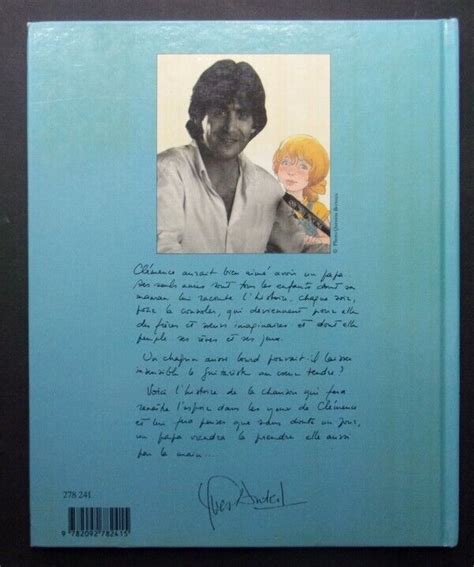 Clémence aurait bien aimé avoir un papa.
Ses seuls amis sont tous les enfants dont sa
maman lui raconte l'histoire, chaque soir,
pour la consoler, qui deviennent pour elle
des frères et sœurs imaginaires et dont elle
peuple ses rêves et ses jeux.
Un chagrin aussi lourd pouvait-il laisser
insensible le guitariste au cœur tendre ?
Voici l'histoire de la chanson qui fera
renaître l'espoir dans les yeux de Clémence
et lui fera penser que sans doute un jour,
un papa viendra la prendre elle aussi
par la main...
278 241
Yves Duteil
9 782092 782415